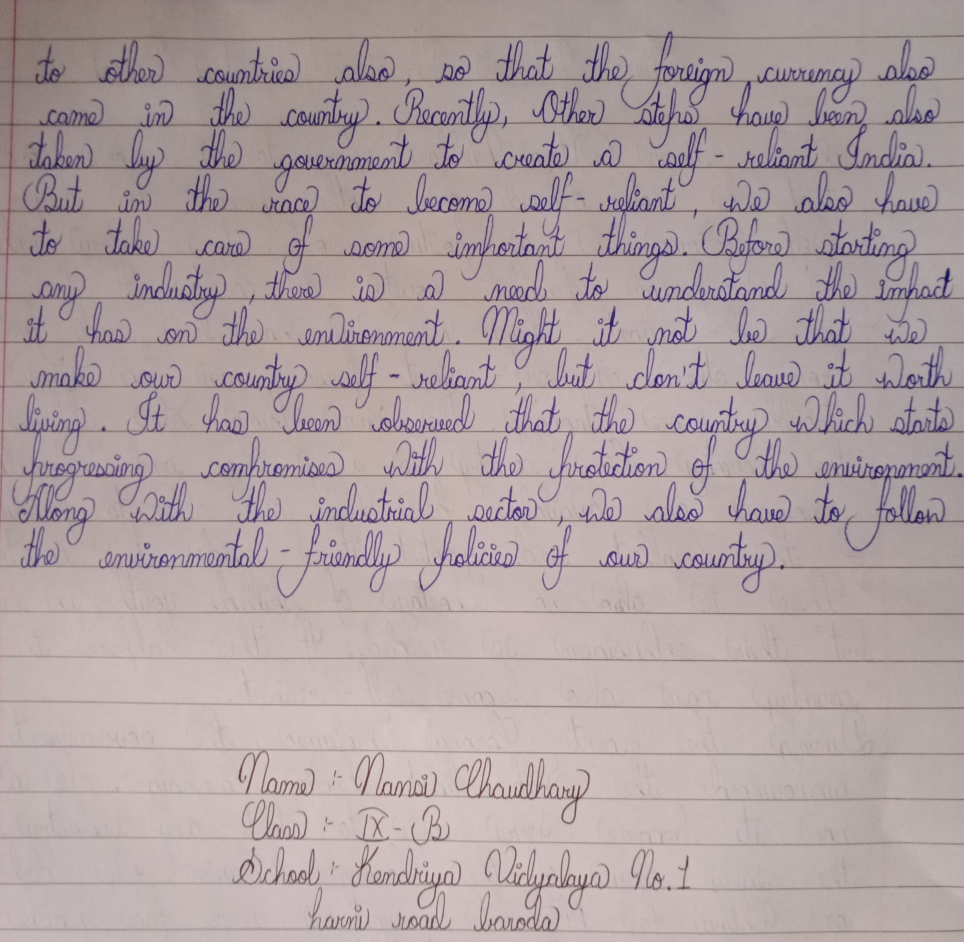 to other countries also, so that the foreign currency also
came in the country. Recently, Other steps have been also
taken by the government to create a self-reliant India.
But in the race to become self-reliant, we also have
to take care of some important things. Before starting
any industry, there is a need to understand the impact
it has on the environment. Might it not be that we
make our country self-reliant, but don't leave it worth
living. It has been observed that the country which starts
progressing compromises with the protection of the environment.
Along with the industrial sector, we also have to follow
the environmental-friendly policies of our country.
Name :- Mansi Chaudhary
Class :- IX-B
School :- Kendriya Vidyalaya No.1
harni road baroda